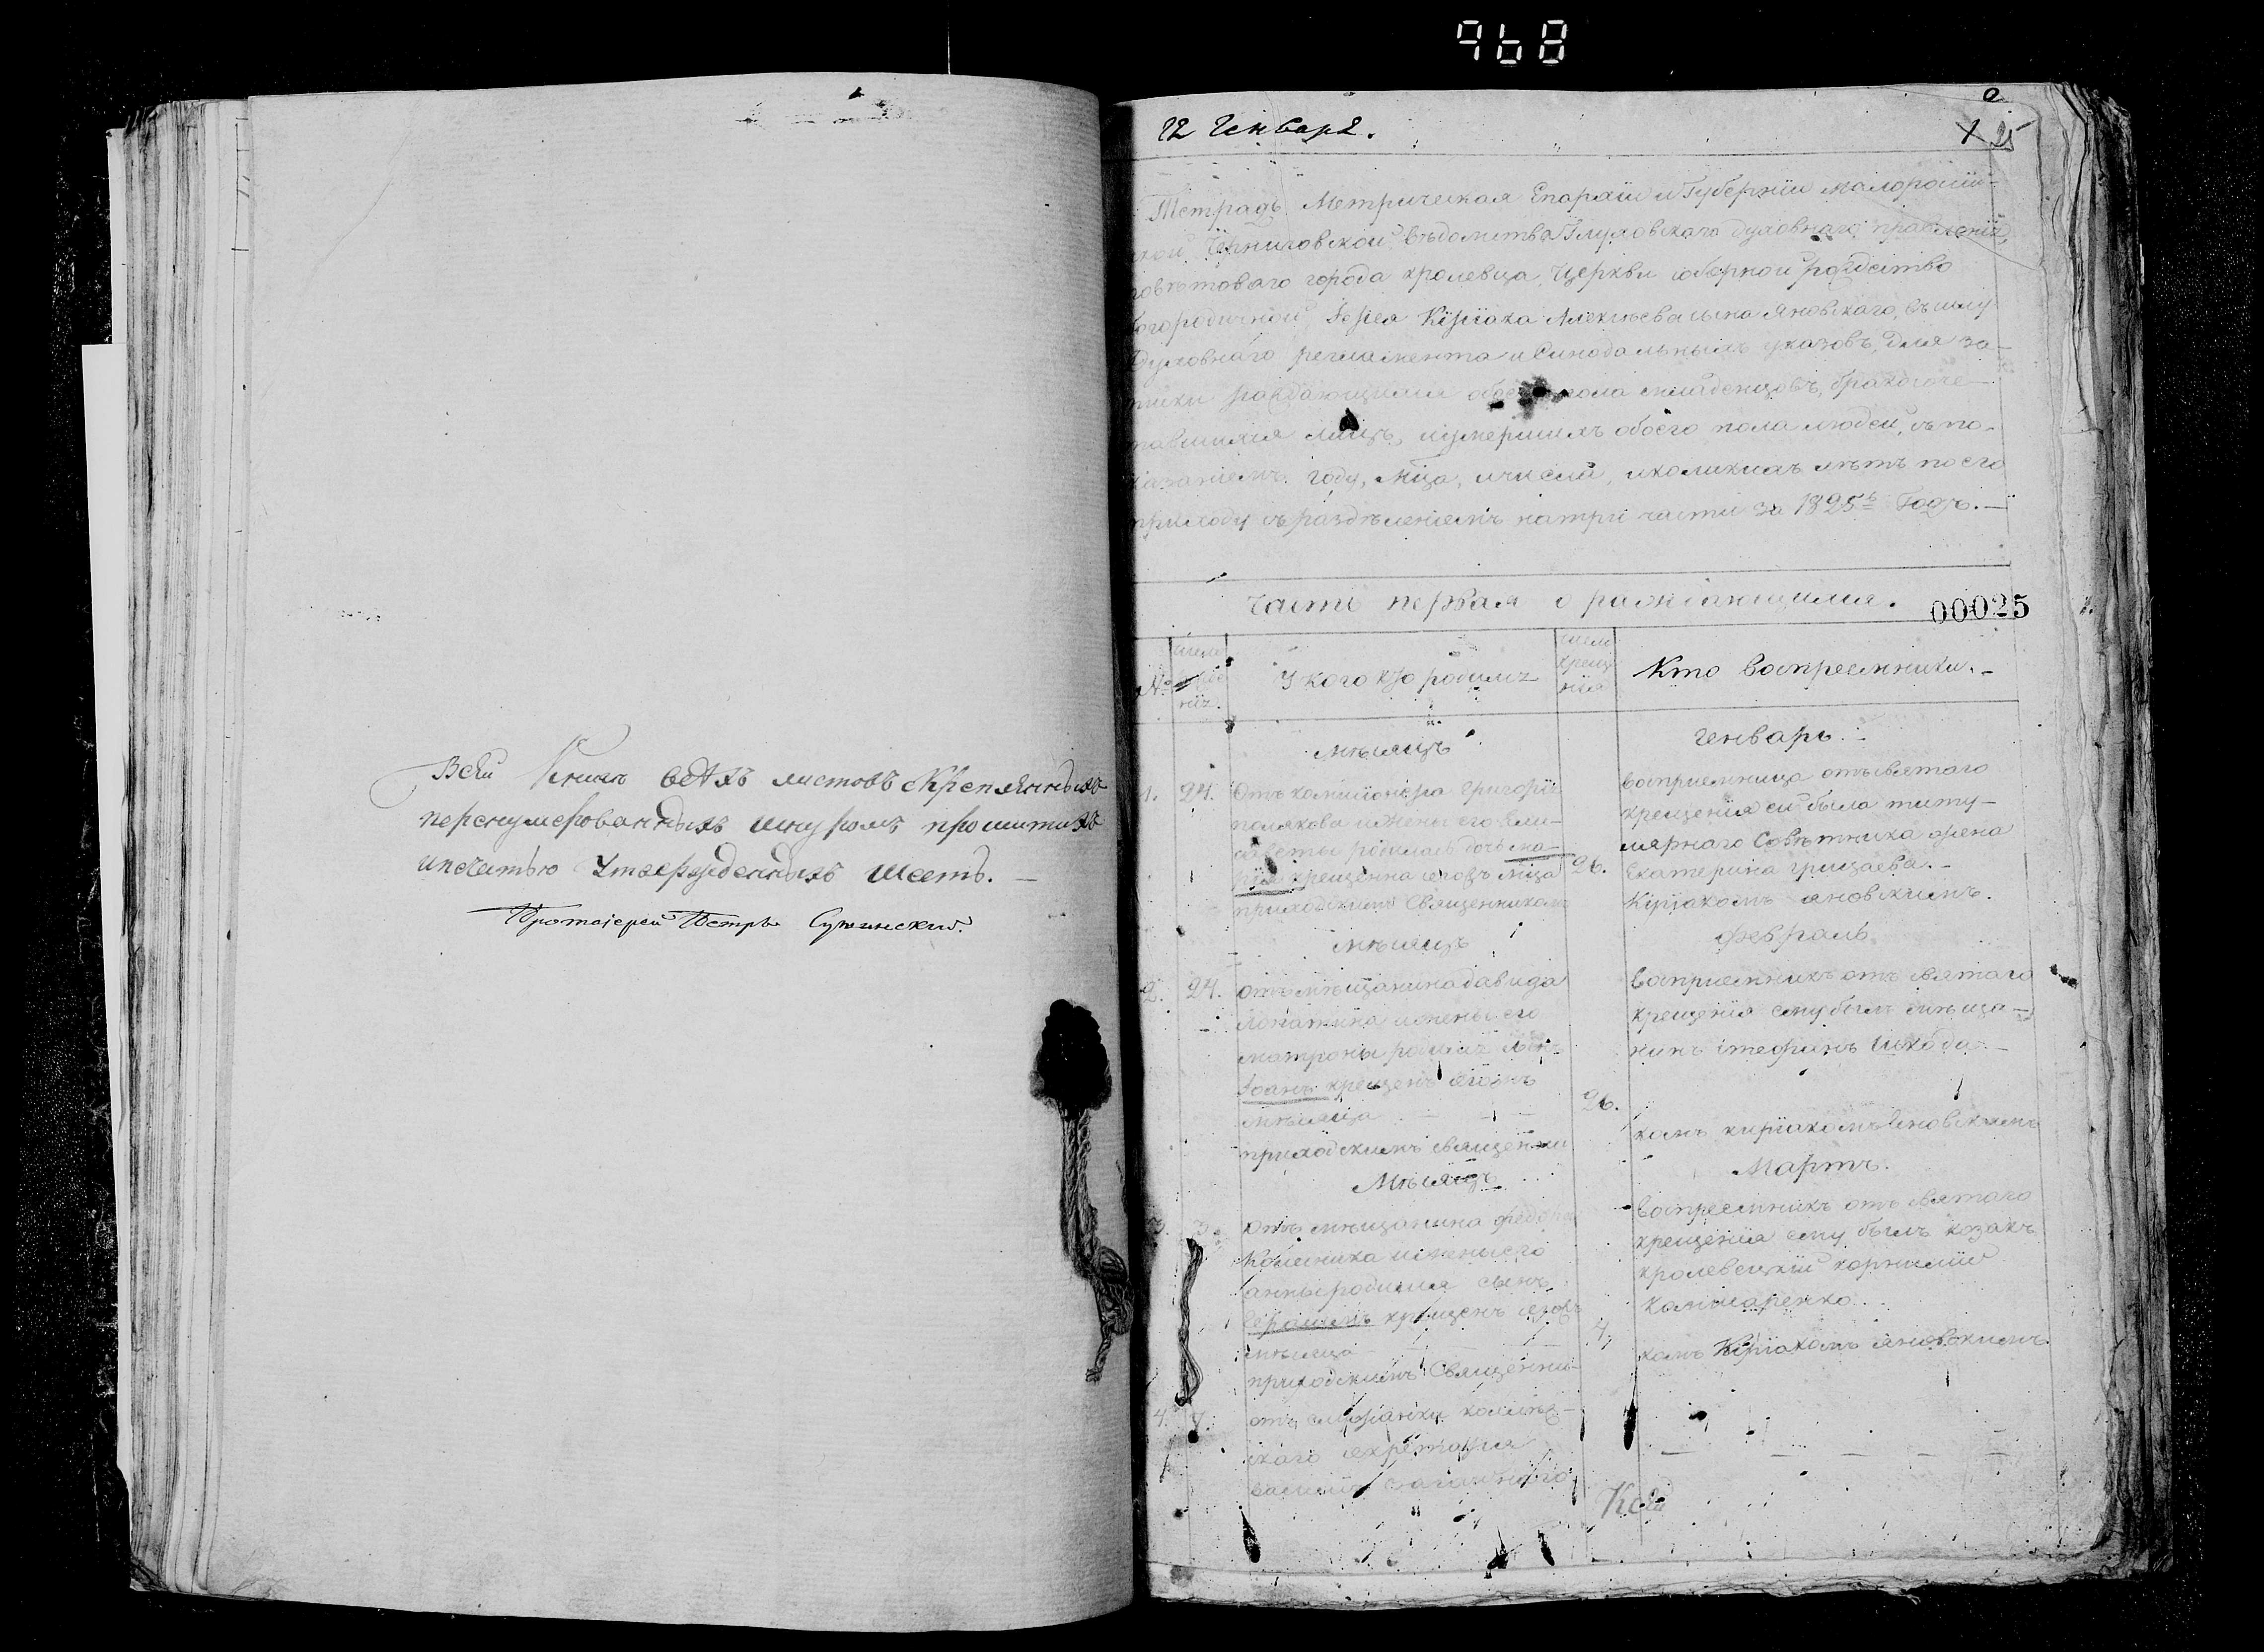 968
Всей Книги всѣхъ листовъ скрепленныхъ
перенумерованныхъ шнуромъ прошитыхъ
ипечатью Утвержденныхъ Шесть. —
Протоіерей Петръ
12 Генваря.
25
Тетрадь Метрическая Епархіи и Губерніи малороссій-
Черниговской, вѣдомства Глуховскаго духовнаго правленія,
повѣтоваго города кролевца, Церкви соборной рождество
богородичной Іерея Кіріака Алексѣева сына Яновскаго, въсилу
Духовнаго регламента и Синодальныхъ указовъ, для за-
писки раждающихся обоего пола младенцовъ, бракосоче-
тавшихся лицъ, иумершихъ обоего пола людей, съ по-
казаніемъ году, мца, ичисла, иколикихъ лѣтъ по его
приходу съ раздѣленіемъ натри части за 1825ъ Годъ. —
Часть первая о раждающихся.
00025
№
У кого кто родился
Кто воспреемники. —
мѣсяцъ
Генварь.
1. 24.
Отъ комисіонера Григорія
полякова ижены его Ели-
саветы родилась дочь ма-
рія крещенна сегожъ мца
приходскимъ Священникомъ
26.
Воспріемница отъ святаго
крещенія ей была титу-
лярнаго Совѣтника жена
Екатерина грицаева. —
Кіріакомъ яновскимъ.
мѣсяцъ
февраль
2. 24.
отъ мѣщанина давида
лопатина ижены его
матроны родился сынъ
Іоанъ крещенъ сегожъ
мѣсяца
приходскимъ священни
26.
Воспріемникъ отъ святаго
крещенія ему былъ мѣща-
нинъ стефанъ
комъ киріакомъ яновскимъ
Мѣсяцъ
Мартъ.
3. 3.
отъ мѣщанина федора
Колесника ижены его
анны родился сынъ
Герасимъ крещенъ сегожъ
мѣсяца
приходскимъ Священни-
4.
воспреемникъ отъ святаго
крещенія ему былъ козакъ
кролевецкій корнилій
комъ Кіріакомъ яновскимъ.
4. 7.
отъ
скаго секретаря
василія